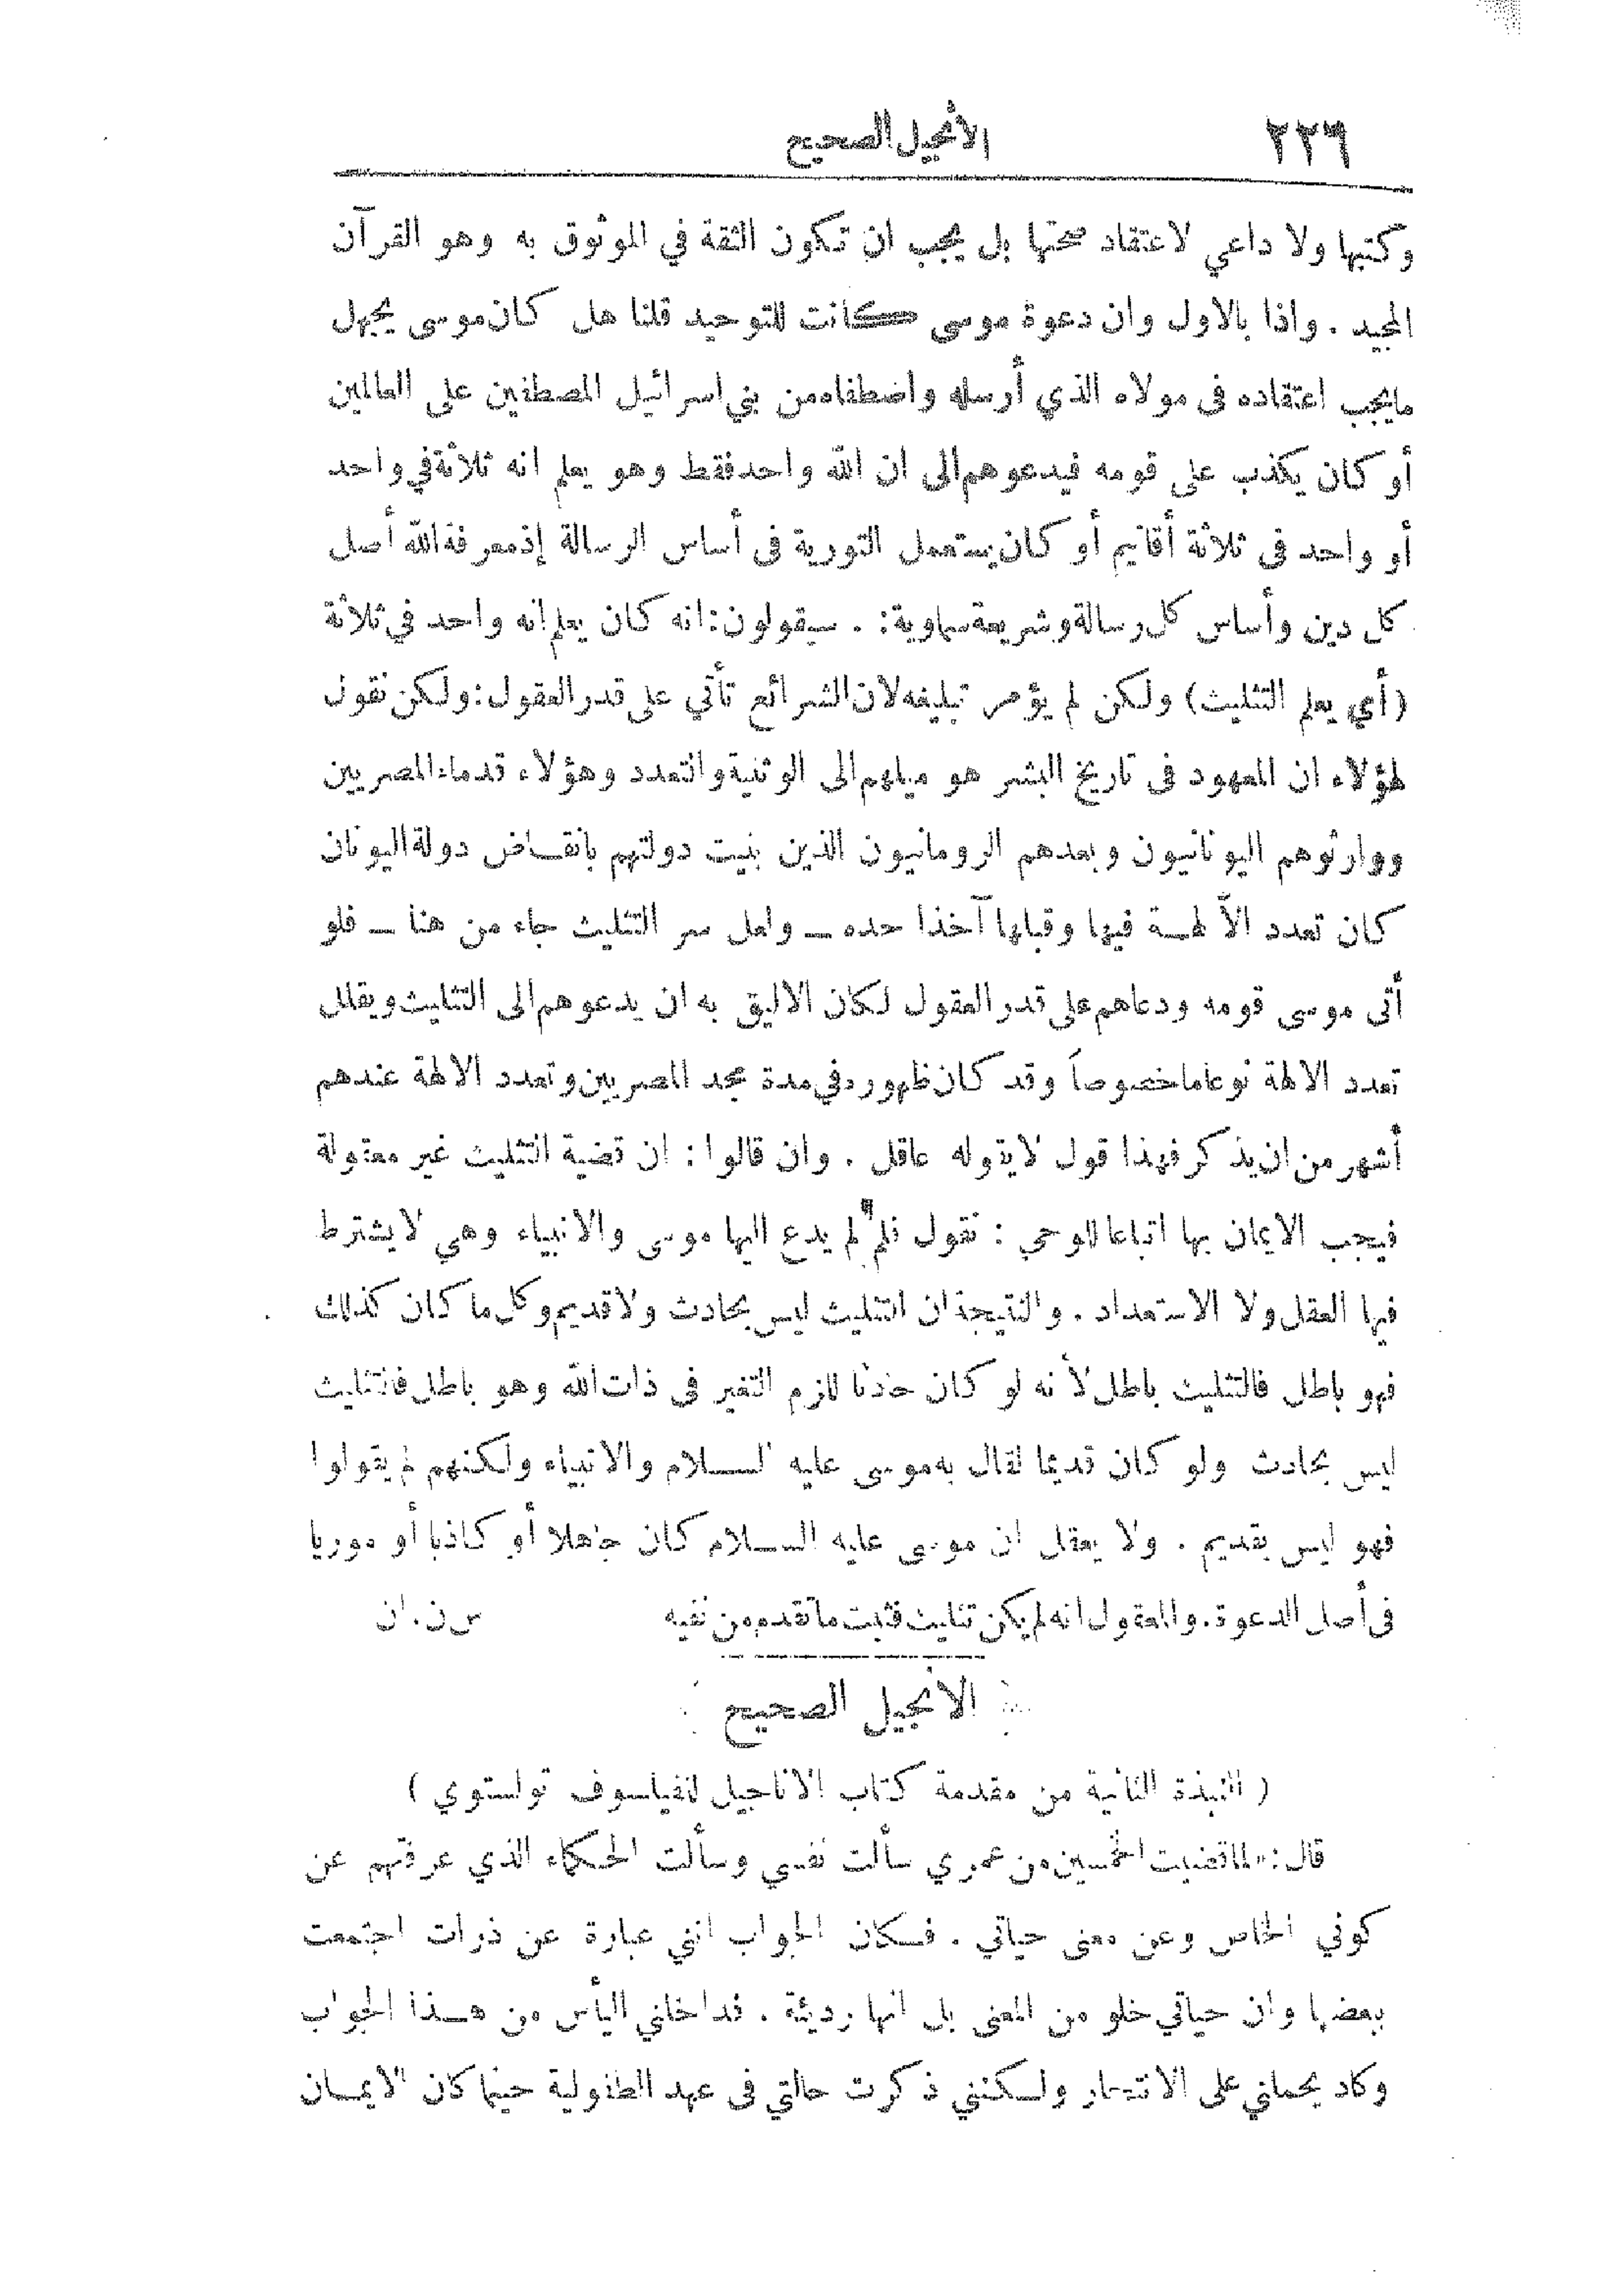 ٢٢٦
الانجيل الصحيح
وكتبها ولا داعي لاعتقاد صحتها بل يجب ان تكون الثقة في الموثوق به وهو القرآن
المجيد . واذا بالاول وان دعوة موسى كانت للتوحيد قلنا هل كان موسى يجهل
مايجب اعتقاده في مولاه الذي أرسله واصطفاه من بني اسرائيل المصطفين على العالمين
أو كان يكذب على قومه فيدعوهم الى ان الله واحد فقط وهو يعلم انه ثلاثة في واحد
أو واحد في ثلاثة أقانيم أو كان يستعمل التورية في أساس الرسالة إذ معرفة الله أصل
كل دين وأساس كل رسالة وشريعة سماوية : . سيقولون : انه كان يعلم انه واحد في ثلاثة
( أي يعلم التثليث ) ولكن لم يؤمر تبليغه لان الشرائع تأتي على قدر العقول : ولكن نقول
لهؤلاء ان المعهود في تاريخ البشر هو ميلهم الى الوثنية والتعدد وهؤلاء قدماء المصريين
ووارثوهم اليونانيون وبعدهم الرومانيون الذين بنيت دولتهم بانقاض دولة اليونان
كان تعدد الآلهة فيها وقبلها آخذا حده ـ ولعل سر التثليث جاء من هنا ـ فلو
أتى موسى قومه ودعاهم على قدر العقول لكان الاليق به ان يدعوهم الى التثليث ويقلل
تعدد الالهة نوعا ما خصوصاً وقد كان ظهوره في مدة مجد المصريين وتعدد الالهة عندهم
أشهر من ان يذكر فهذا قول لا يقوله عاقل . وان قالوا : ان قضية التثليث غير معقولة
فيجب الايمان بها اتباعا للوحي : نقول فلم لم يدع اليها موسى والانبياء وهي لا يشترط
فيها العقل ولا الاستعداد . والنتيجة ان التثليث ليس بحادث ولا قديم وكل ما كان كذلك
فهو باطل فالتثليث باطل لأنه لو كان حادثا للزم التغير في ذات الله وهو باطل فالتثليث
ليس بحادث ولو كان قديما لقال به موسى عليه السلام والانبياء ولكنهم لم يقولوا
فهو ليس بقديم . ولا يعقل ان موسى عليه السلام كان جاهلا أو كاذبا أو موريا
في أصل الدعوة . والمعقول انه لم يكن تثليث فثبت ما تقدم من نفيه س ن . ان
الانجيل الصحيح
( النبذة الثانية من مقدمة كتاب الاناجيل للفيلسوف تولستوي )
قال : « لما قضيت الخمسين من عمري سألت نفسي وسألت الحكماء الذي عرفتهم عن
كوني الخاص وعن معنى حياتي . فكان الجواب انني عبارة عن ذرات اجتمعت
ببعضها وان حياتي خلو من المعنى بل انها رديئة . فداخلني اليأس من هذا الجواب
وكاد يحملني على الانتحار ولكنني ذكرت حالتي في عهد الطفولية حينما كان الايمان